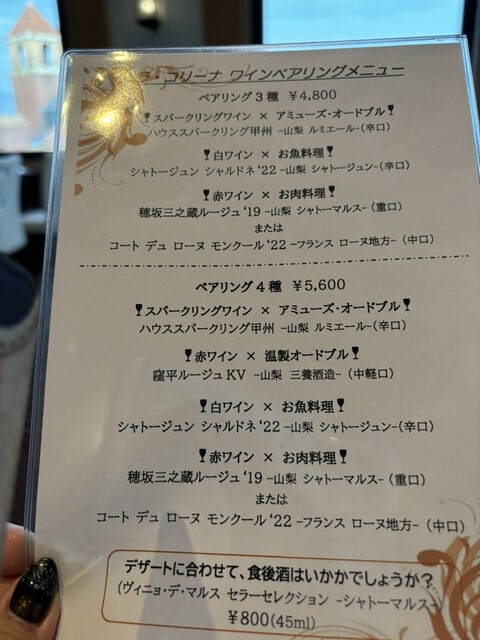 ラ・コリーナ ワインペアリングメニュー
ペアリング3種 ¥4,800
スパークリングワイン × アミューズ・オードブル
ハウススパークリング甲州 -山梨 ルミエール-(辛口)
白ワイン × お魚料理
シャトージュン シャルドネ‘22 -山梨 シャトージュン-(辛口)
赤ワイン × お肉料理
穂坂三之蔵ルージュ‘19 -山梨 シャトーマルス- (重口)
または
コート デュ ローヌ モンクール‘22 -フランス ローヌ地方- (中口)
ペアリング4種 ¥5,600
スパークリングワイン × アミューズ・オードブル
ハウススパークリング甲州 -山梨 ルミエール-(辛口)
赤ワイン × 温製オードブル
窪平ルージュKV -山梨 三養酒造- (中軽口)
白ワイン × お魚料理
シャトージュン シャルドネ‘22 -山梨 シャトージュン-(辛口)
赤ワイン × お肉料理
穂坂三之蔵ルージュ‘19 -山梨 シャトーマルス- (重口)
または
コート デュ ローヌ モンクール‘22 -フランス ローヌ地方- (中口)
デザートに合わせて、食後酒はいかかでしょうか?
(ヴィニョ・デ・マルス セラーセレクション -シャトーマルス-)
¥800(45ml)